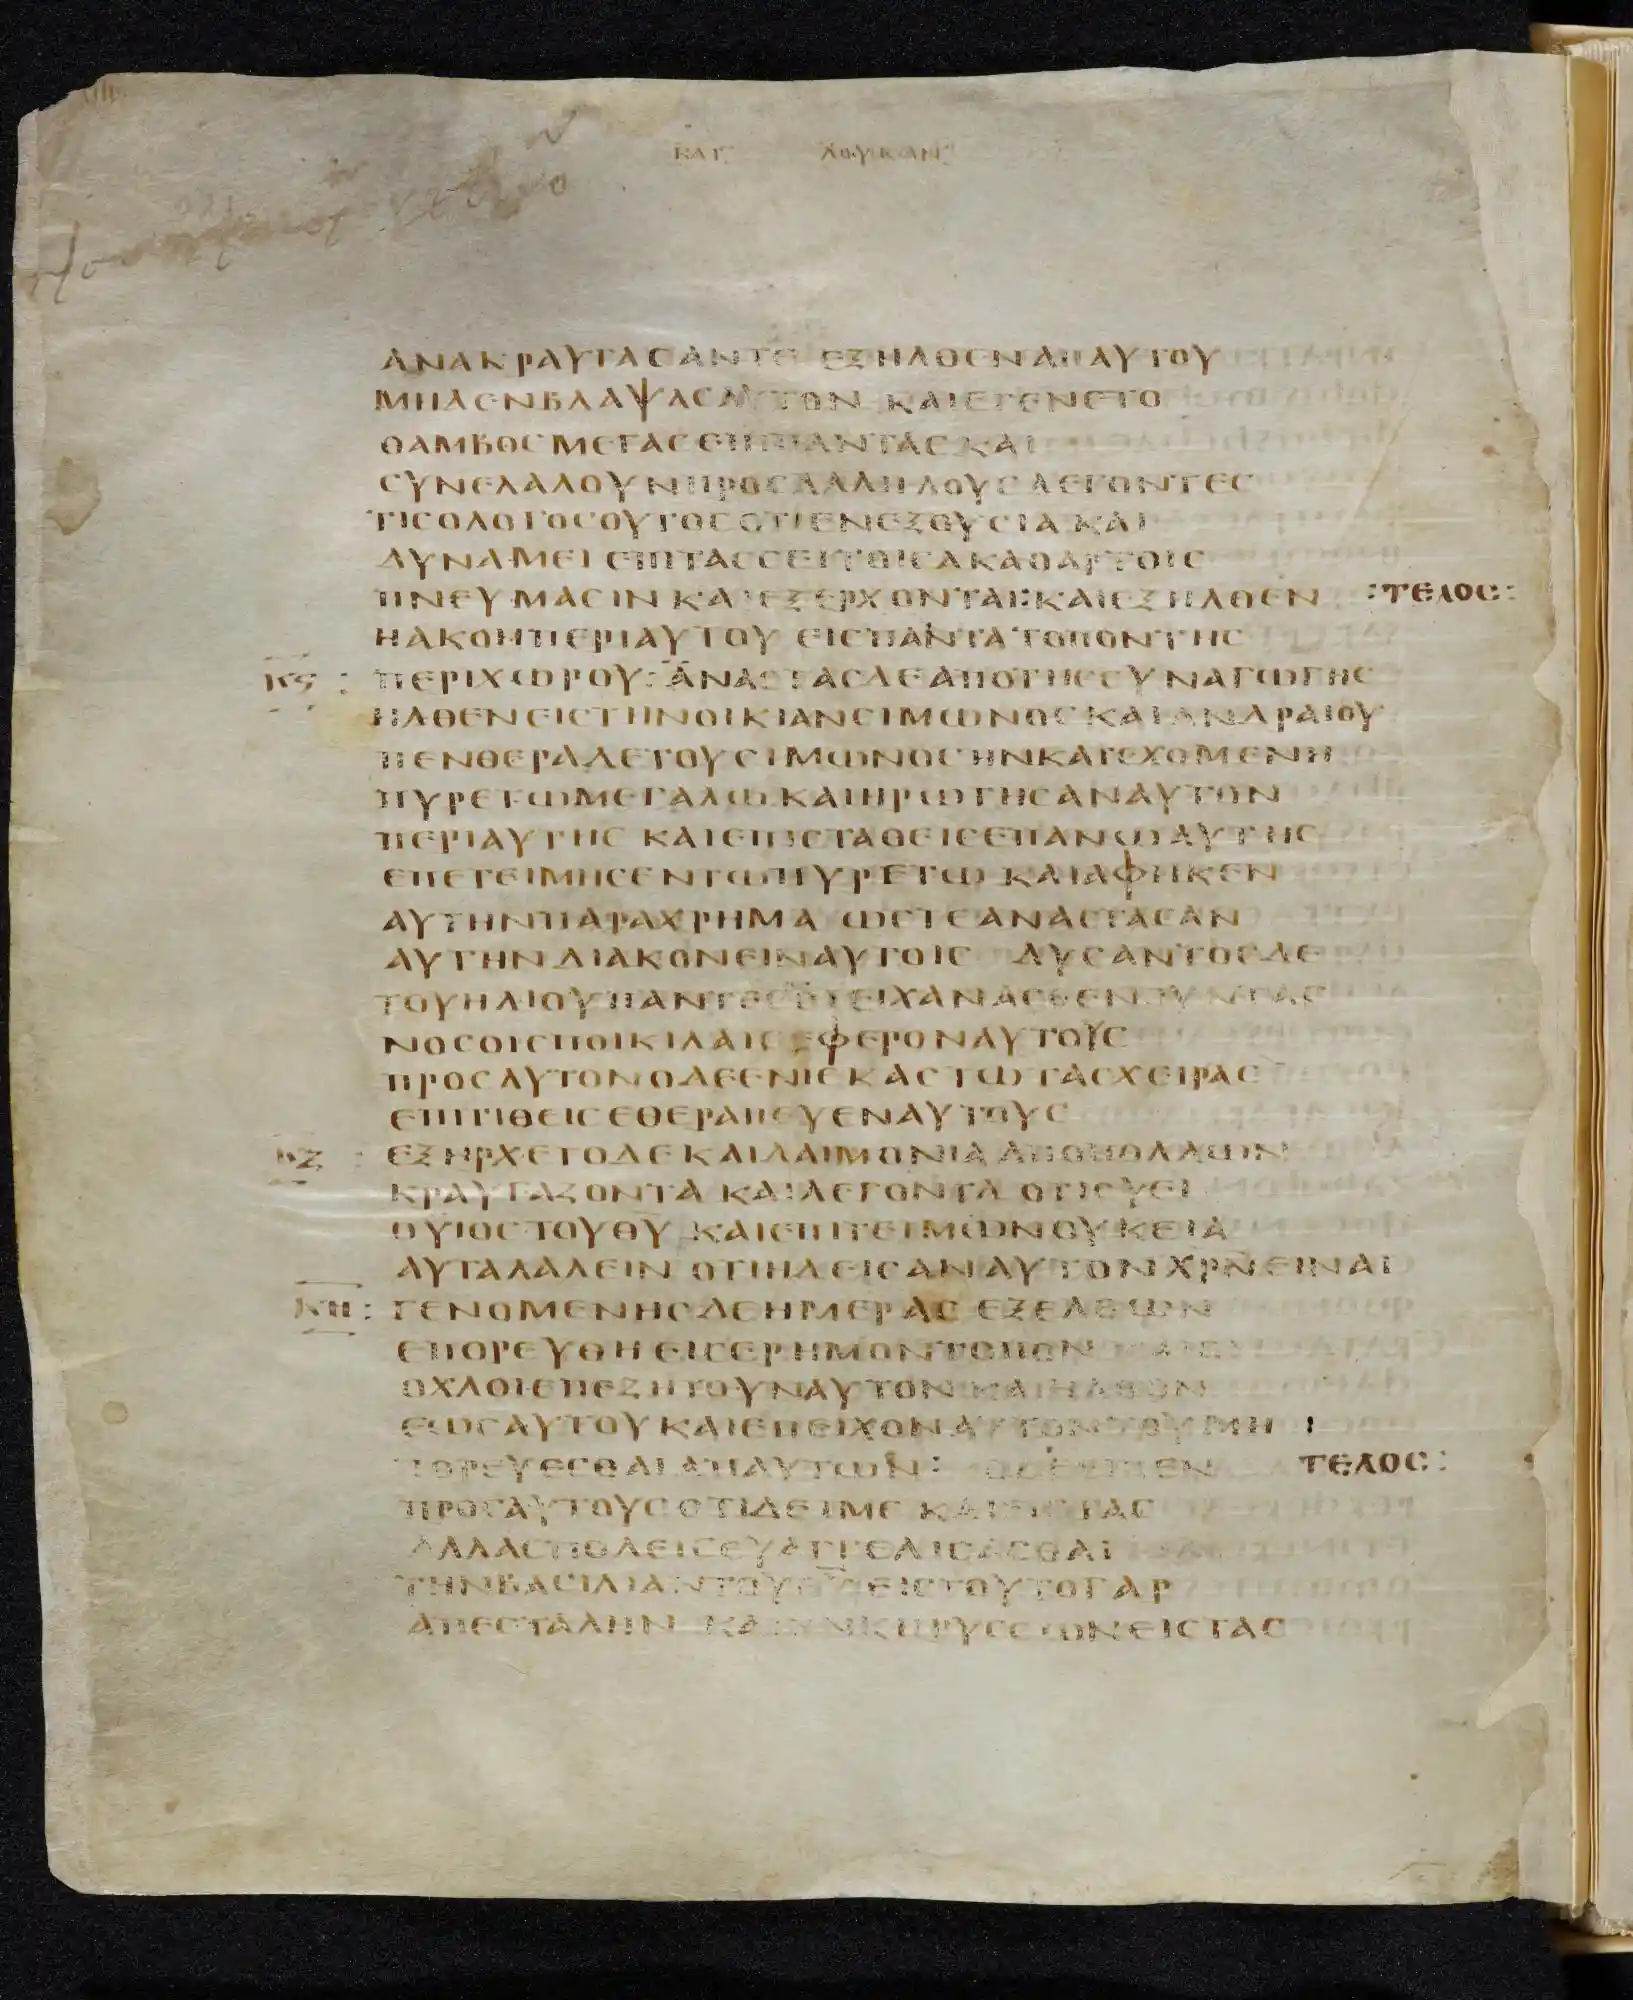 ΚΑΤ ΛΟΥΚΑΝ
ΑΝΑΚΡΑΥΓΑСΑΝΤΕ ΕΞΗΛΘΕΝΑΠΑΥΤΟΥ
ΜΗΔΕΝΒΛΑΨΑСΑΥΤΟΝ ΚΑΙΕΓΕΝΕΤΟ
ΘΑΜΒΟСΜΕΓΑСΕΠΙΠΑΝΤΑСΚΑΙ
СΥΝΕΛΑΛΟΥΝΠΡΟСΑΛΛΗΛΟΥСΛΕΓΟΝΤΕС
ΤΙСΟΛΟΓΟСΟΥΤΟСΟΤΙΕΝΕΞΟΥСΙΑΚΑΙ
ΔΥΝΑΜΕΙΕΠΙΤΑССΕΙΤΟΙСΑΚΑΘΑΡΤΟΙС
ΠΝΕΥΜΑСΙΝΚΑΙΕΞΕΡΧΟΝΤΑΙ:ΚΑΙΕΞΗΛΘΕΝ :ΤΕΛΟС:
ΗΑΚΟΗΠΕΡΙΑΥΤΟΥ ΕΙСΠΑΝΤΑΤΟΠΟΝΤΗС
ΚϚ : ΠΕΡΙΧΩΡΟΥ:ΑΝΑСΤΑСΔΕΑΠΟΤΗССΥΝΑΓΩΓΗС
ΗΛΘΕΝΕΙСΤΗΝΟΙΚΙΑΝСΙΜΩΝΟСΚΑΙΑΝΔΡΑΙΟΥ
ΠΕΝΘΕΡΑΔΕΤΟΥСΙΜΩΝΟСΗΝΚΑΤΕΧΟΜΕΝΗ
ΠΥΡΕΤΩΜΕΓΑΛΩΚΑΙΗΡΩΤΗСΑΝΑΥΤΟΝ
ΠΕΡΙΑΥΤΗС ΚΑΙΕΠΙСΤΑΘΕΙСΕΠΑΝΩΑΥΤΗС
ΕΠΕΤΕΙΜΗСΕΝΤΩΠΥΡΕΤΩ ΚΑΙΑΦΗΚΕΝ
ΑΥΤΗΝΠΑΡΑΧΡΗΜΑ ΩСΤΕΑΝΑСΤΑСΑΝ
ΑΥΤΗΝΔΙΑΚΟΝΕΙΝΑΥΤΟΙС ΔΥСΑΝΤΟСΔΕ
ΤΟΥΗΛΙΟΥΠΑΝΤΕСΟΤΕΙΧΑΝΑСΘΕΝΟΥΝΤΑС
ΝΟСΟΙСΠΟΙΚΙΛΑΙСΕΦΕΡΟΝΑΥΤΟΥС
ΠΡΟСΑΥΤΟΝΟΔΕΕΝΙΕΚΑСΤΩΤΑСΧΕΙΡΑС
ΕΠΙΤΙΘΕΙСΕΘΕΡΑΠΕΥΕΝΑΥΤΟΥС
ΚΖ : ΕΞΗΡΧΕΤΟΔΕΚΑΙΔΑΙΜΟΝΙΑΑΠΟΠΟΛΛΩΝ
ΚΡΑΥΓΑΖΟΝΤΑ ΚΑΙΛΕΓΟΝΤΑ ΟΤΙСΥΕΙ
ΟΥΙΟСΤΟΥΘΥ ΚΑΙΕΠΙΤΕΙΜΩΝΟΥΚΕΙΑ
ΑΥΤΑΛΑΛΕΙΝ ΟΤΙΗΔΕΙСΑΝΑΥΤΟΝΧΡΝΕΙΝΑΙ
ΚΗ : ΓΕΝΟΜΕΝΗСΔΕΗΜΕΡΑС ΕΞΕΛΘΩΝ
ΕΠΟΡΕΥΘΗΕΙСΕΡΗΜΟΝΤΟΠΟΝ
ΟΧΛΟΙΕΠΕΖΗΤΟΥΝΑΥΤΟΝΚΑΙΗΛΘΟΝ
ΕΩСΑΥΤΟΥΚΑΙΕΠΕΙΧΟΝΑΥΤΟΝΤΟΥΜΗ
ΠΟΡΕΥΕСΘΑΙΑΠΑΥΤΩΝ: ΟΔΕΕΙΠΕΝ ΤΕΛΟС:
ΠΡΟСΑΥΤΟΥСΟΤΙΔΕΙΜΕ ΚΑΙΕΙСΤΑС
ΑΛΛΑСΠΟΛΕΙСΕΥΑΓΓΕΛΙСΑСΘΑΙ
ΤΗΝΒΑСΙΛΙΑΝΤΟΥΘΥΕΙСΤΟΥΤΟΓΑΡ
ΑΠΕСΤΑΛΗΝ ΚΑΙΗΝΚΗΡΥССΩΝΕΙСΤΑС